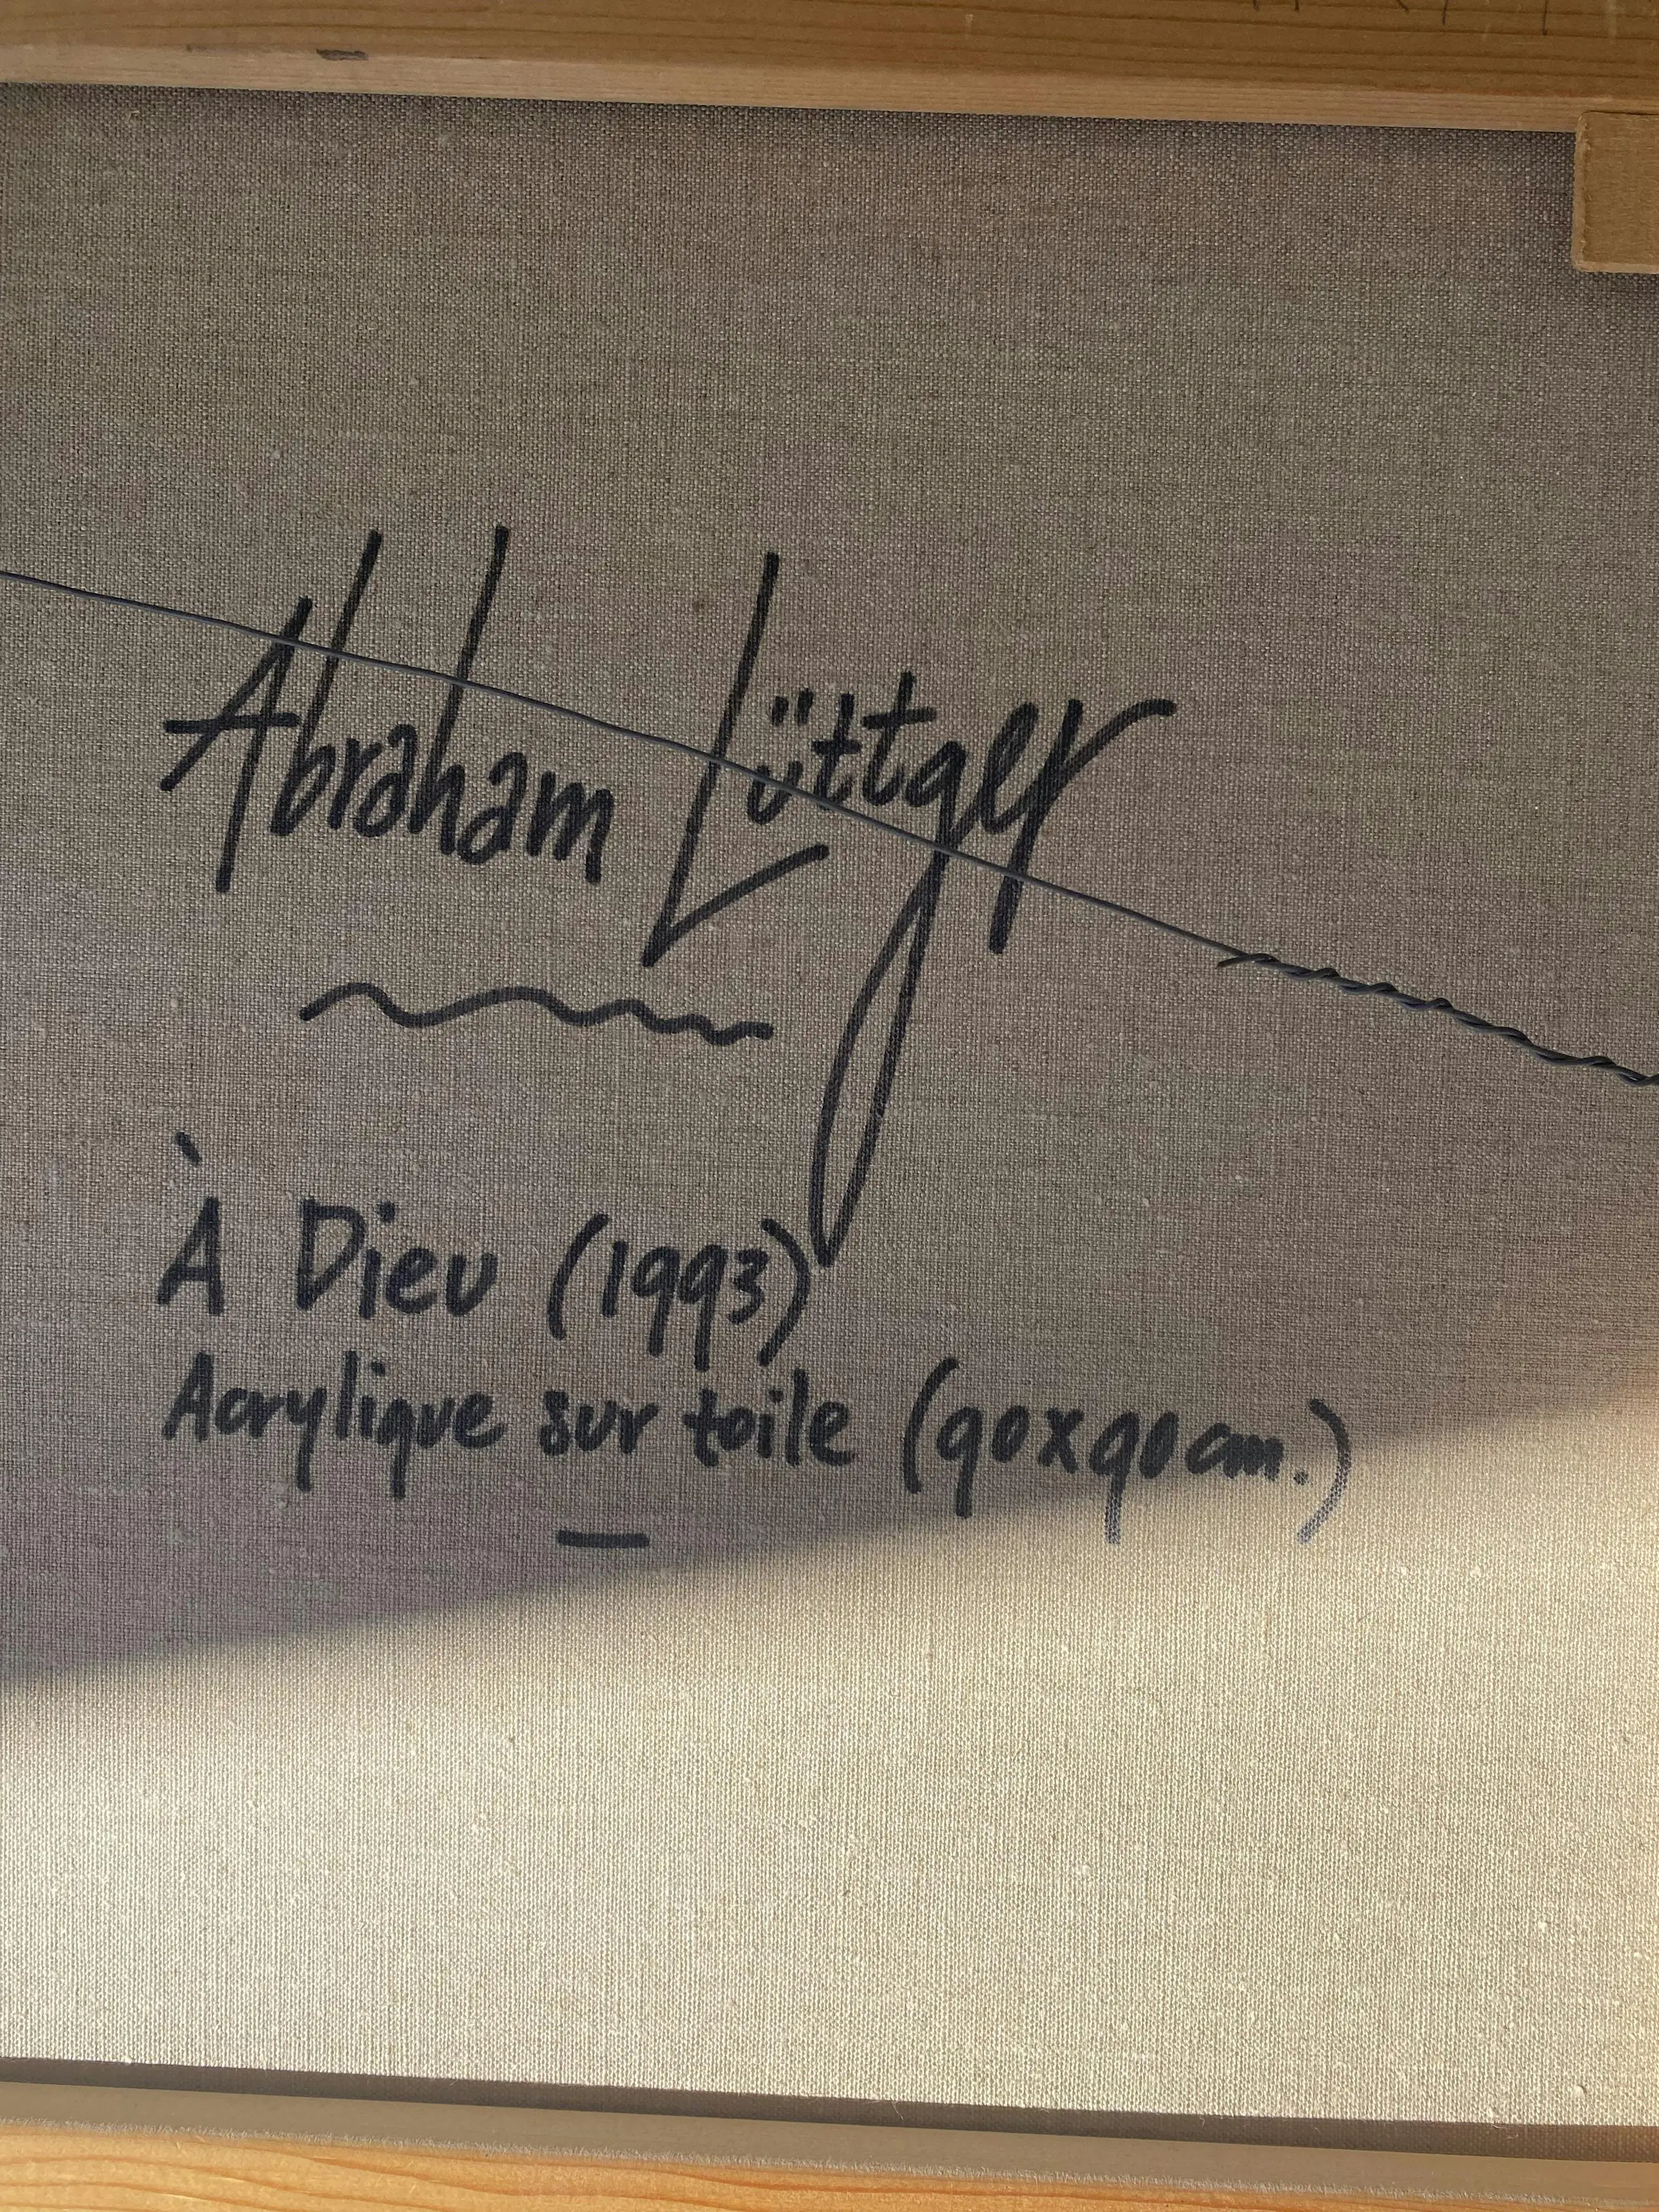 Abraham Lüttger
À Dieu (1993)
Acrylique sur toile (90x90cm.)